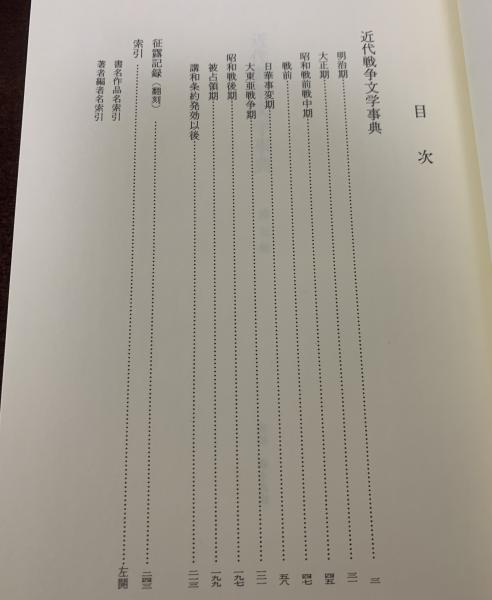 目次
近代戦争文学事典
明治期……三
大正期……三一
昭和戦前戦中期……四五
戦前……四七
日華事変期……五八
大東亜戦争期……一二一
昭和戦後期……一九七
被占領期……一九九
講和条約発効以後……二一三
征露記録〈翻刻〉……二四三
索引……左開
書名作品名索引
著者編者名索引